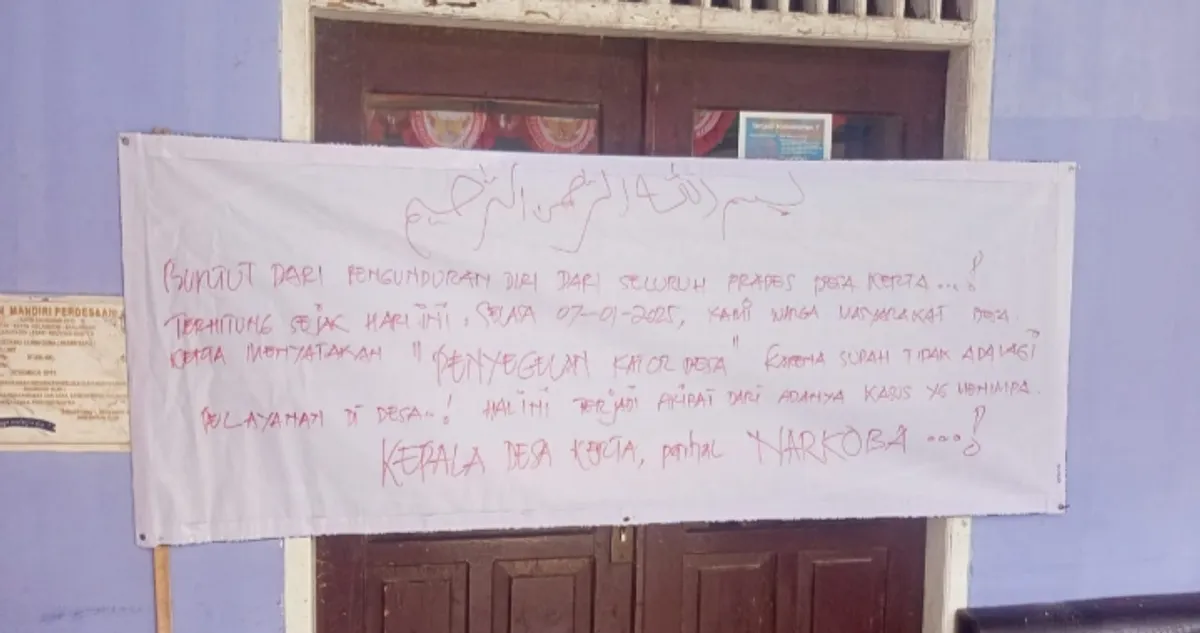 بسم الله الرحمن الرحيم
BUNTUT DARI PENGUNDURAN DIRI DARI SELURUH PRADES DESA KERTA...!
TERHITUNG SEJAK HARI INI, SELASA 07-01-2025, KAMI WARGA MASYARAKAT DESA.
KERTA MENYATAKAN "PENYEGELAN KATOR DESA" KARENA SUDAH TIDAK ADA LAGI
PELAYANAN DI DESA..! HAL INI TERJADI AKIBAT DARI ADANYA KASUS YG MENIMPA.
KEPALA DESA KERTA, perihal NARKOBA ...!
MANDIRI PERDESAAN